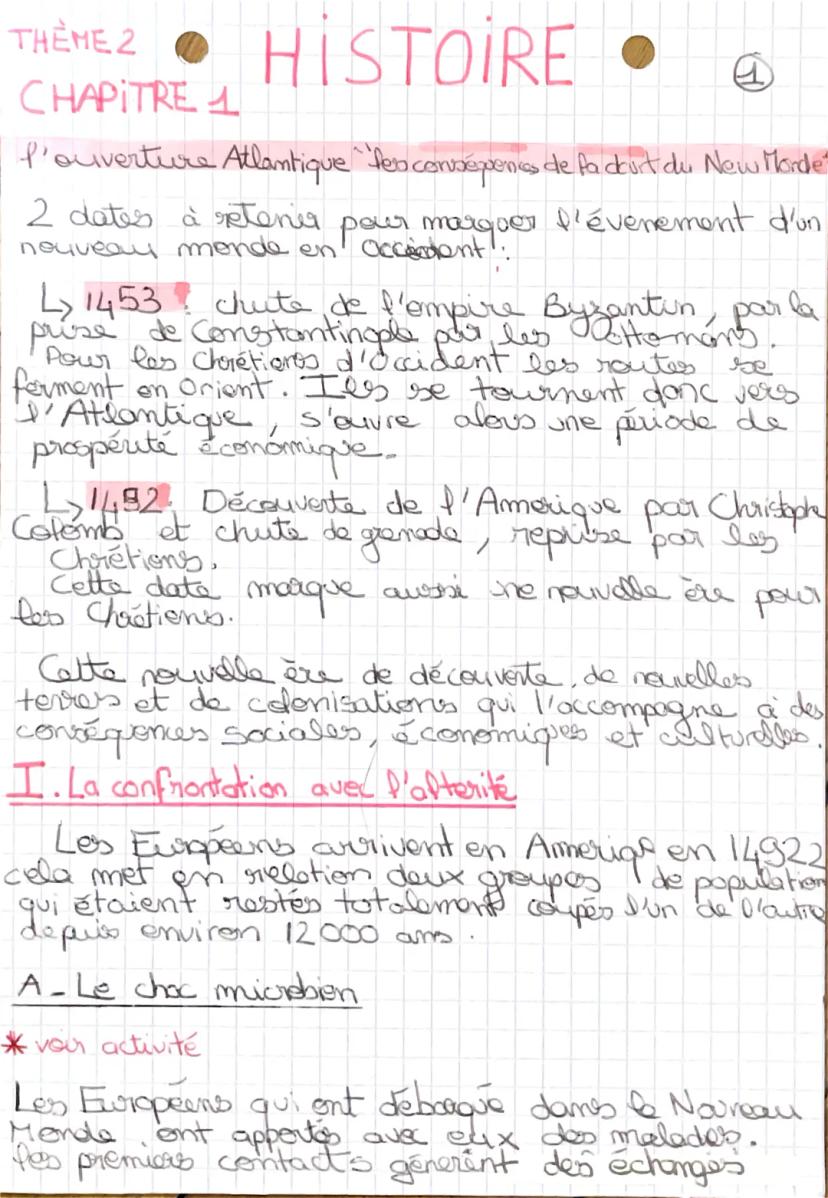 THÈME 2
HISTOIRE
1
CHAPITRE 1
l'ouverture Atlantique "les conséquences de la du New Monde"
2 dates à retenir pour marquer l'évenement d'un
nouveau monde en Occident :
↳ 1453 : chute de l'empire Byzantin, par la
prise de Constantinople par les Ottomans.
Pour les Chrétiens d'Occident les routes se
ferment en Orient. Ils se tournent donc vers
l'Atlantique, s'ouvre alors une période de
prospérité économique.
↳ 1492. Découverte de l'Amerique par Christophe
Colomb et chute de grenade, reprise par les
Chrétiens.
Cette date marque aussi une nouvelle ère pour
les Chrétiens.
Cette nouvelle ère de découverte, de nouvelles
terres et de colonisations qui l'accompagne à des
conséquences sociales, économiques et culturelles.
I. La confrontation avec l'alterité
Les Européens arrivent en en 14922
cela met en relation deux groupes de population
qui étaient restés totalement coupés l'un de l'autre
depuis environ 12000 ans.
A - Le choc microbien
* voir activité
Les Européens qui ont débarqué dans le Nouveau
Monde ont apportés avec eux des malades.
les premiers contacts génerent des échanges